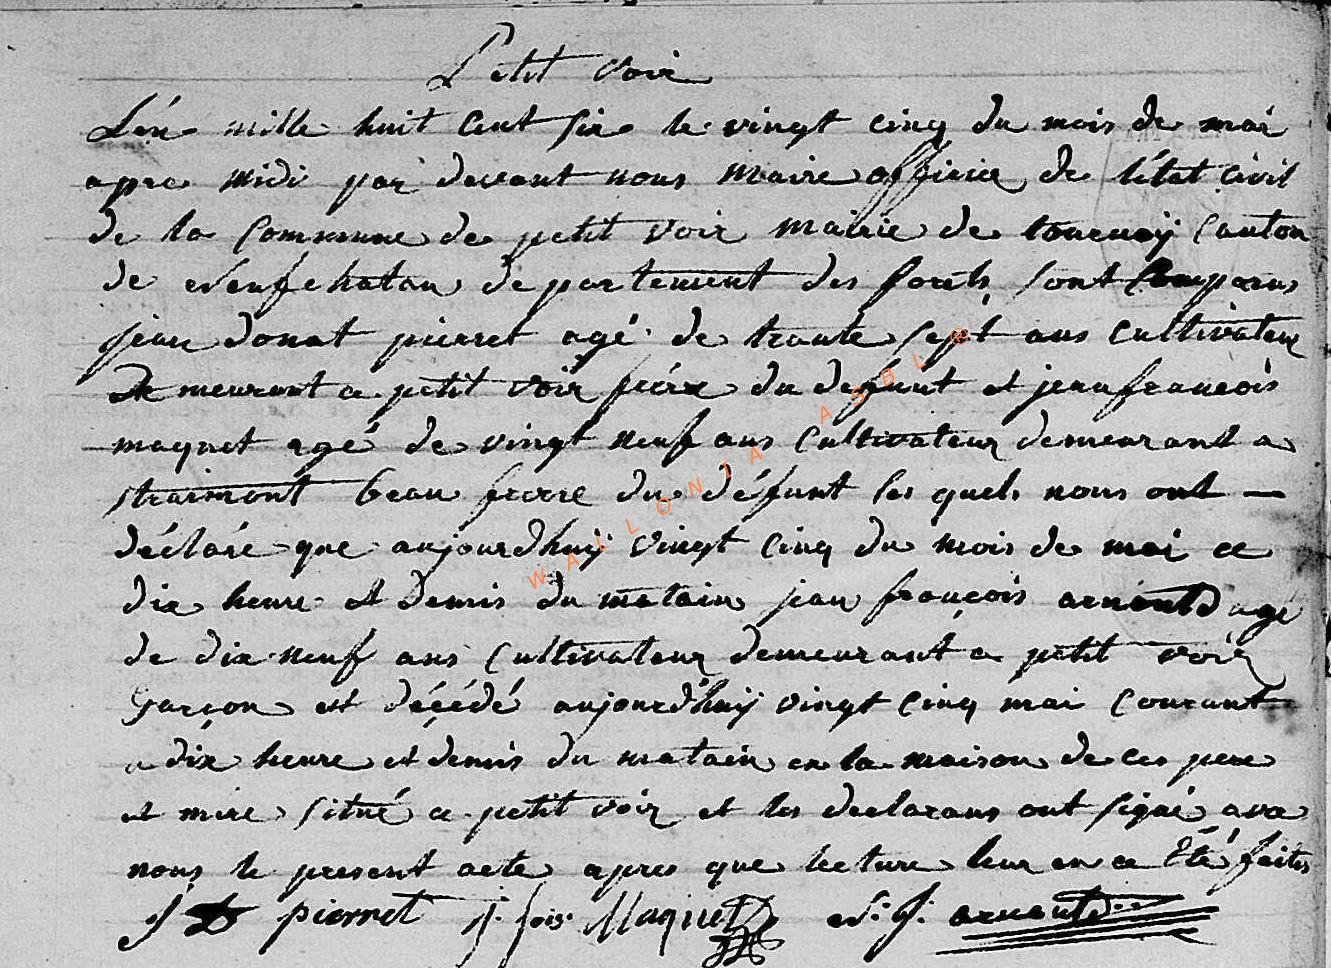 Petit voir
L'an mille huit Cent six le vingt cinq du mois de mai
apre midi par devant nous maire officier de l'état civil
de la Commune de petit voir mairie de tournaÿ Canton
de Neufchatau departement des forets sont Comparus
jean donat pierret agé de trante sept ans cultivateur
demeurant a petit voir frére du defunt et jean francois
maquet agé de vingt neuf ans Cultivateur demeurant a
straimont beau frere du défunt les quels nous ont
déclaré que aujourdhuÿ vingt cinq du mois de mai a
dix heure et demis du matain jean francois arnould agé
de dix neuf ans Cultivateur demeurant a petit voir
Garçon est décédé aujourd'huÿ vingt cinq mai courant
a dix heure et demis du matain en la maison de ces pere
et mere situé a petit voir et les declarans ont signé avec
nous le present acte apres que lecture leur en a Été faites
J D pierret j. fois. Maquet N. J. arnould
WALLONIA ASBL ®